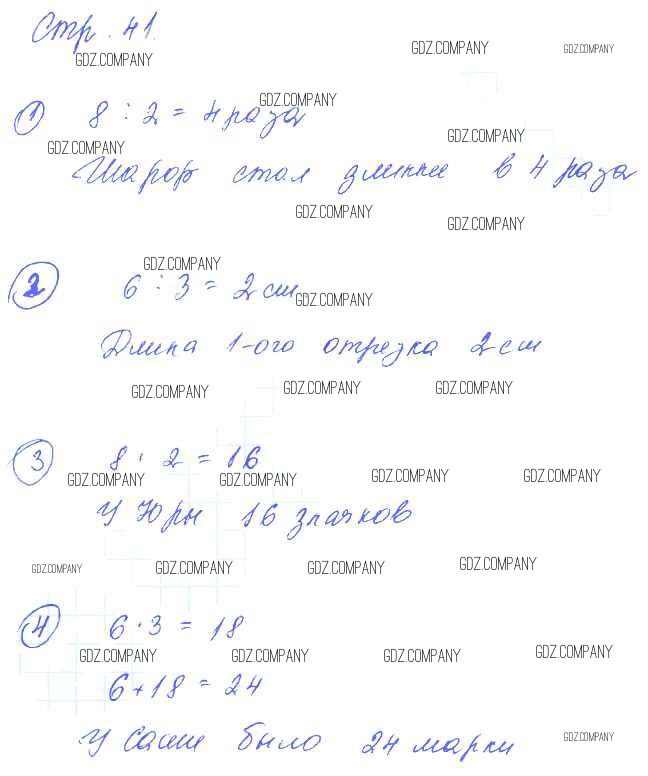 Стр. 41.
GDZ.COMPANY
GDZ.COMPANY
GDZ.COMPANY
GDZ.COMPANY
1 8 : 2 = 4 раза
GDZ.COMPANY
GDZ.COMPANY
Шарф стал длиннее в 4 раза
GDZ.COMPANY
GDZ.COMPANY
GDZ.COMPANY
2 6 : 3 = 2 см
GDZ.COMPANY
Длина 1-ого отрезка 2 см
GDZ.COMPANY
GDZ.COMPANY
GDZ.COMPANY
3 8 · 2 = 16
GDZ.COMPANY
GDZ.COMPANY
GDZ.COMPANY
GDZ.COMPANY
У Юры 16 значков
GDZ.COMPANY
GDZ.COMPANY
GDZ.COMPANY
GDZ.COMPANY
4 6 · 3 = 18
GDZ.COMPANY
GDZ.COMPANY
GDZ.COMPANY
GDZ.COMPANY
6 + 18 = 24
У Саши было 24 марки
GDZ.COMPANY